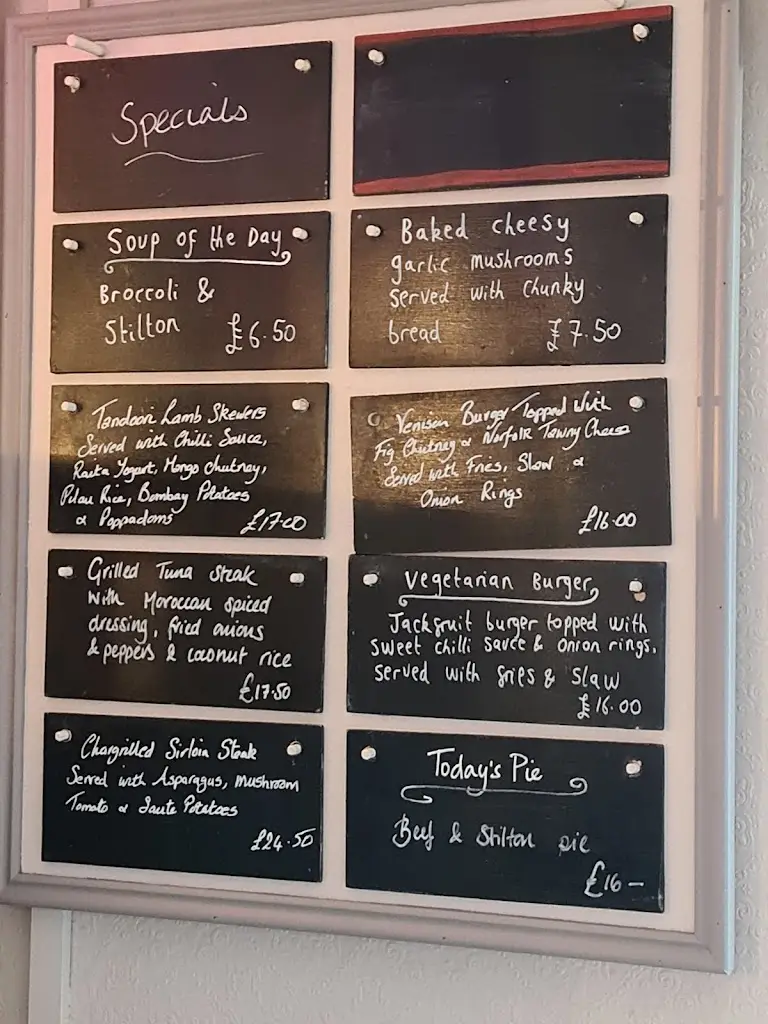 Specials
Soup of the Day
Broccoli &
Stilton £6.50
Baked cheesy
garlic mushrooms
served with chunky
bread £7.50
Tandoori Lamb Skewers
Served with Chilli Sauce,
Raita Yogurt, Mango Chutney,
Pilau Rice, Bombay Potatoes
& Poppadoms £17.00
Venison Burger Topped With
Fig Chutney & Norfolk Tawny Cheese
Served with Fries, Slaw &
Onion Rings
£16.00
Grilled Tuna steak
with Moroccan spiced
dressing, fried onions
& peppers & coconut rice
£17.50
Vegetarian Burger
Jackfruit burger topped with
sweet chilli sauce & onion rings,
served with fries & slaw
£16.00
Chargrilled Sirloin Steak
Served with Asparagus, mushroom
Tomato & Saute Potatoes
£24.50
Today's Pie
Beef & Stilton pie
£16-